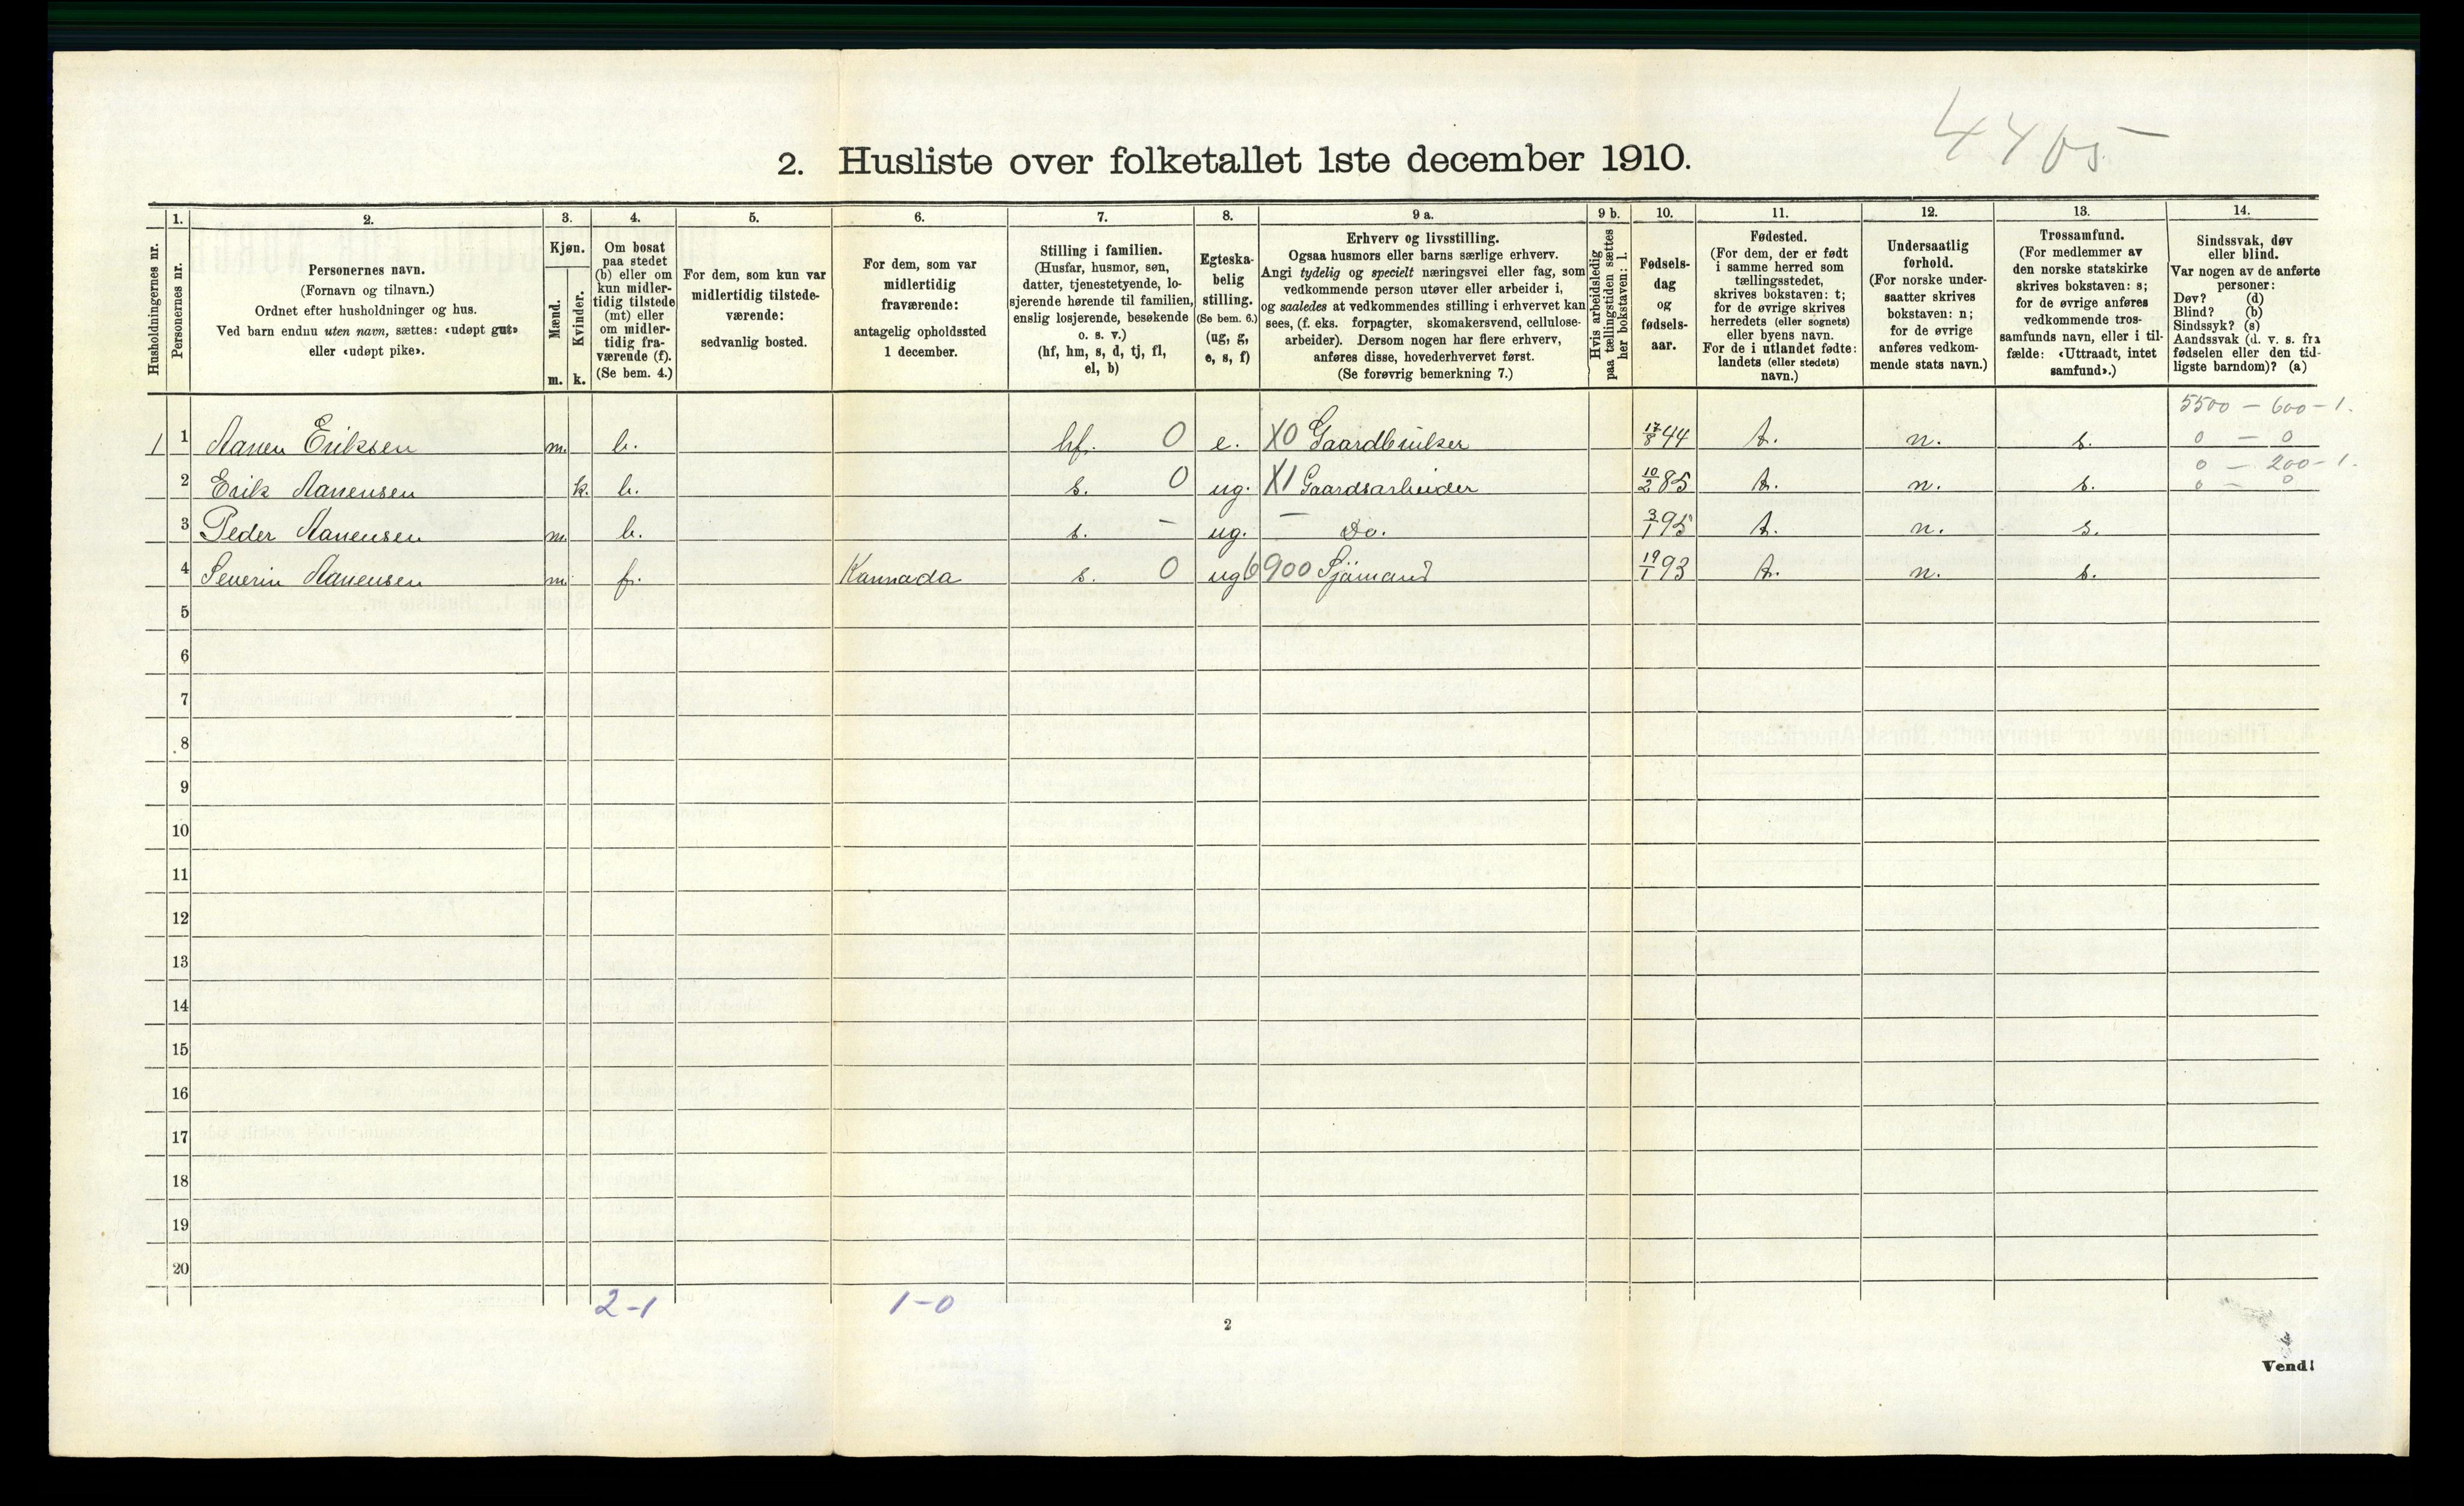 4405-
2. Husliste over folketallet 1ste december 1910.
Husholdningernes nr.
1.
Personernes nr.
2.
Personernes navn.
(Fornavn og tilnavn.)
Ordnet efter husholdninger og hus.
Ved barn endnu uten navn, sættes: «udøpt gut»
eller «udøpt pike».
3.
Kjøn.
Mænd.
m.
Kvinder.
k.
4.
Om bosat
paa stedet
(b) eller om
kun midler-
tidig tilstede
(mt) eller
om midler-
tidig fra-
værende (f).
(Se bem. 4.)
5.
For dem, som kun var
midlertidig tilstede-
værende:
sedvanlig bosted.
6.
For dem, som var
midlertidig
fraværende:
antagelig opholdssted
1 december.
7.
Stilling i familien.
(Husfar, husmor, søn,
datter, tjenestetyende, lo-
sjerende hørende til familien,
enslig losjerende, besøkende
o. s. v.)
(hf, hm, s, d, tj, fl,
el, b)
8.
Egteska-
belig
stilling.
(Se bem. 6.)
(ug, g,
e, s, f)
9 a.
Erhverv og livsstilling.
Ogsaa husmors eller barns særlige erhverv.
Angi tydelig og specielt næringsvei eller fag, som
vedkommende person utøver eller arbeider i,
og saaledes at vedkommendes stilling i erhvervet kan
sees, (f. eks. forpagter, skomakersvend, cellulose-
arbeider). Dersom nogen har flere erhverv,
anføres disse, hovederhvervet først.
(Se forøvrig bemerkning 7.)
9 b.
Hvis arbeidsledig
paa tællingstiden sættes
her bokstaven: l.
10.
Fødsels-
dag
og
fødsels-
aar.
11.
Fødested.
(For dem, der er født
i samme herred som
tællingsstedet,
skrives bokstaven: t;
for de øvrige skrives
herredets (eller sognets)
eller byens navn.
For de i utlandet fødte:
landets (eller stedets)
navn.)
12.
Undersaatlig
forhold.
(For norske under-
saatter skrives
bokstaven: n;
for de øvrige
anføres vedkom-
mende stats navn.)
13.
Trossamfund.
(For medlemmer av
den norske statskirke
skrives bokstaven: s;
for de øvrige anføres
vedkommende tros-
samfunds navn, eller i til-
fælde: «Uttraadt, intet
samfund».)
14.
Sindssvak, døv
eller blind.
Var nogen av de anførte
personer:
Døv? (d)
Blind? (b)
Sindssyk? (s)
Aandssvak (d. v. s. fra
fødselen eller den tid-
ligste barndom)? (a)
5500 - 600 - 1.
1 1 Aanen Eriksen m. b. hf. 0 e. X0 Gaardbruker 17/8 44 t. n. s. 0 - 0
0 - 200 - 1.
2 Erik Aanensen k. b. s. 0 ug. X1 Gaardsarbeider 10/2 85 t. n. s. 0 - 0
3 Peder Aanensen m. b. s. - ug. - Do. 3/1 95 t. n. s.
4 Severin Aanensen m. f. Kannada s. 0 ug 6900 Sjömand 19/1 93 t. n. s.
5
6
7
8
9
10
11
12
13
14
15
16
17
18
19
20
2-1 1-0
2
Vend!